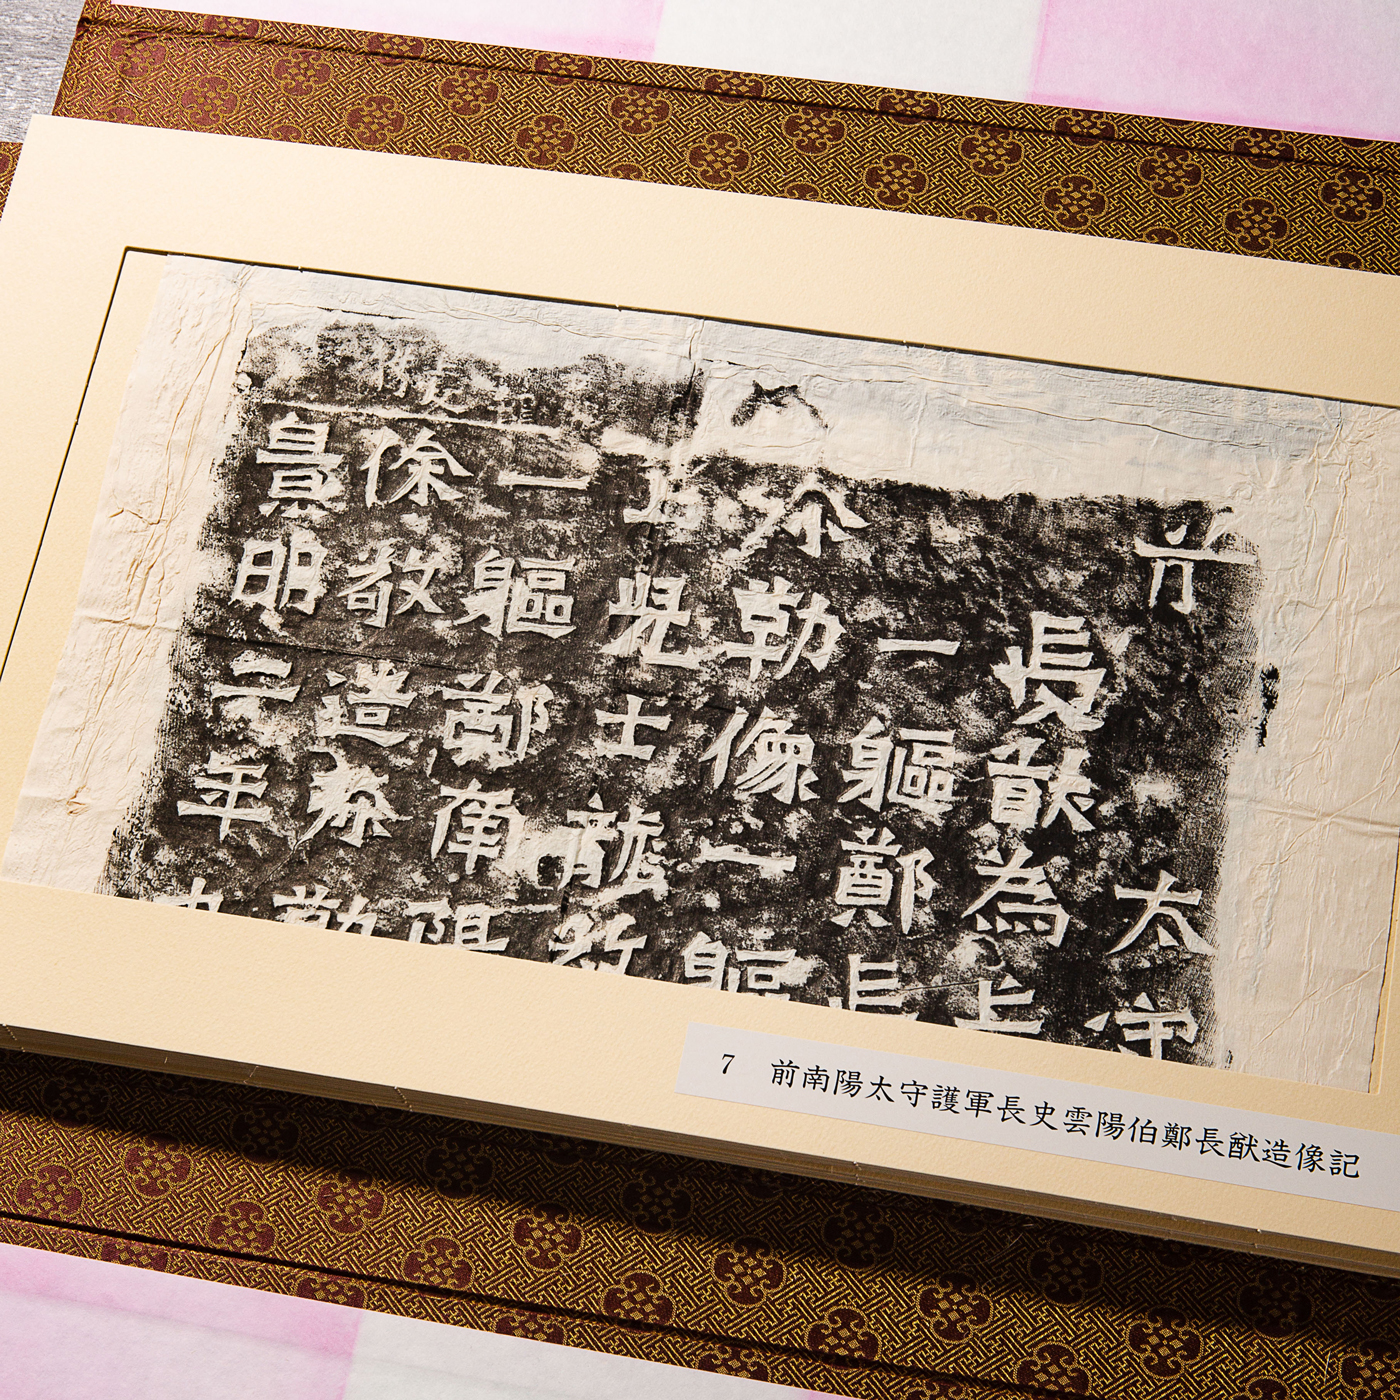 前太守
長猷為亡
一軀鄭長
弥勒像一軀
亡兒士龍敬
一軀鄭南陽
徐敬造弥勒
景明二年九
7 前南陽太守護軍長史雲陽伯鄭長猷造像記